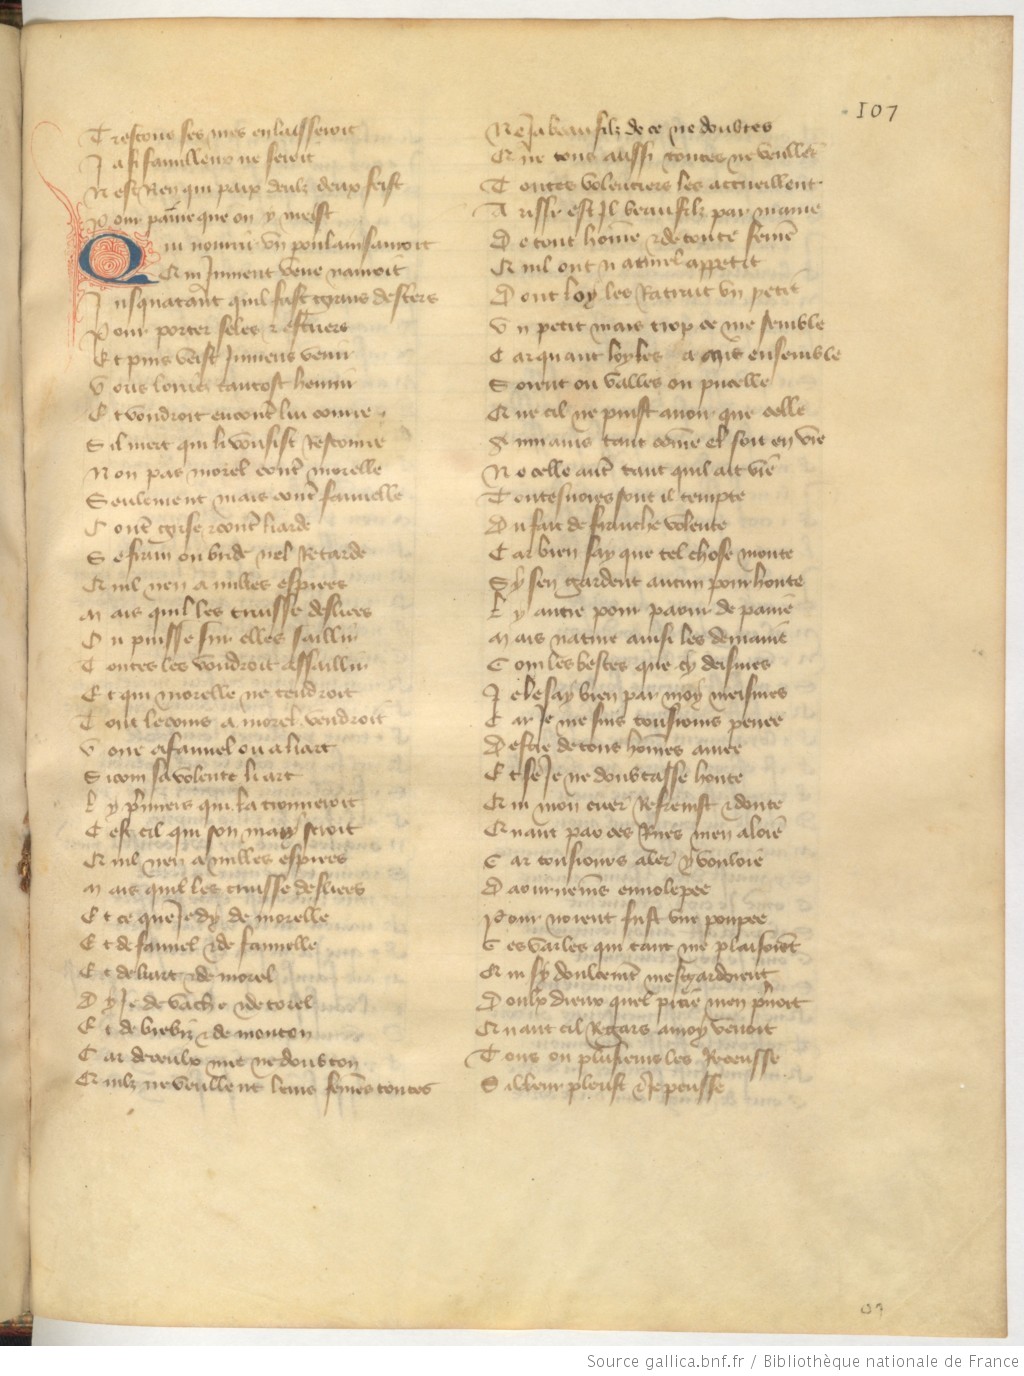 107
Trestous ses mes en laisseroit
Ja si familleux ne seroit
Nest Rien qui paix deulx deux feist
Pour paine que on y meist
Qui nourrir vng poulain sauroit
Qui Jument veue nauroit
Jusquatant quil fust grans destriers
Pour porter seles et estriers
Et puis veist Jumens venir
Vous lorries tantost hennir
Et voudroit encontre lui courre
Sil niert qui li voulsist Rescourre
Non pas morel contre morelle
Seulement mais contre fauuelle
Contre grise et contre liarde
Se frain ou bride nel Retarde
Quil nen a nulles espiees
Mais quil les truisse desliees
Ou puisse sur elles saillir
Toutes les voudroit assaillir
Et qui morelle ne tendroit
Tout le cours a morel vendroit
Voire a fauuel ou a liart
Sicom sa volente li art
Ly premiers qui la trouueroit
Cest cil qui son mary seroit
Quil nen a nulles espiees
Mais quil les truisse desliees
Et ce que Je dy de morelle
Et de fauuel et de fauuelle
Et de liart et de morel
Dy Je de vache et de torel
Et de brebis et de mouton
Car de ceulx mie ne doubton
Quilz ne veullent leurs femes toutes
Ne Ja beau filz de ce ne doubtes
Que tous aussi toutes ne veullent
Toutes volentiers les acueillent
Ainsi est Il beau filz par mame
De tout home et de toute feme
Quil ont naturel appetit
Dont loy les Retrait vn petit
Vn petit mais trop ce me semble
Car quant loy les a mis ensemble
Soient ou valles ou pucelle
Que cil ne puist auoir que celle
Au mains tant come el soit en vie
Ne celle autre tant quil ait vie
Toutesuoies sont il tempte
Duser de franche volente
Car bien say que tel chose monte
Sy sen gardent aucun pour honte
Ly autre pour paour de paine
Mais nature ainsi les demaine
Com les bestes que cy deismes
Je le say bien par moy meismes
Car Je me suis tousiours penee
Destre de tous homes amee
Et se Je ne doubtasse honte
Qui mon cuer Refreint et donte
Quant par ces Rues men aloie
Car tousiours aler y vouloie
Daournemens enuolepee
Pour noient fust vne poupee
Ces valles qui tant me plaisoient
Qui sy doulcement mesgardoient
Doulx dieux quel pitie men prenoit
Quant cil Regars a moy venoit
Tous ou plusieurs les Receusse
Sil leur pleust et Je peusse
Source gallica.bnf.fr / Bibliothèque nationale de France